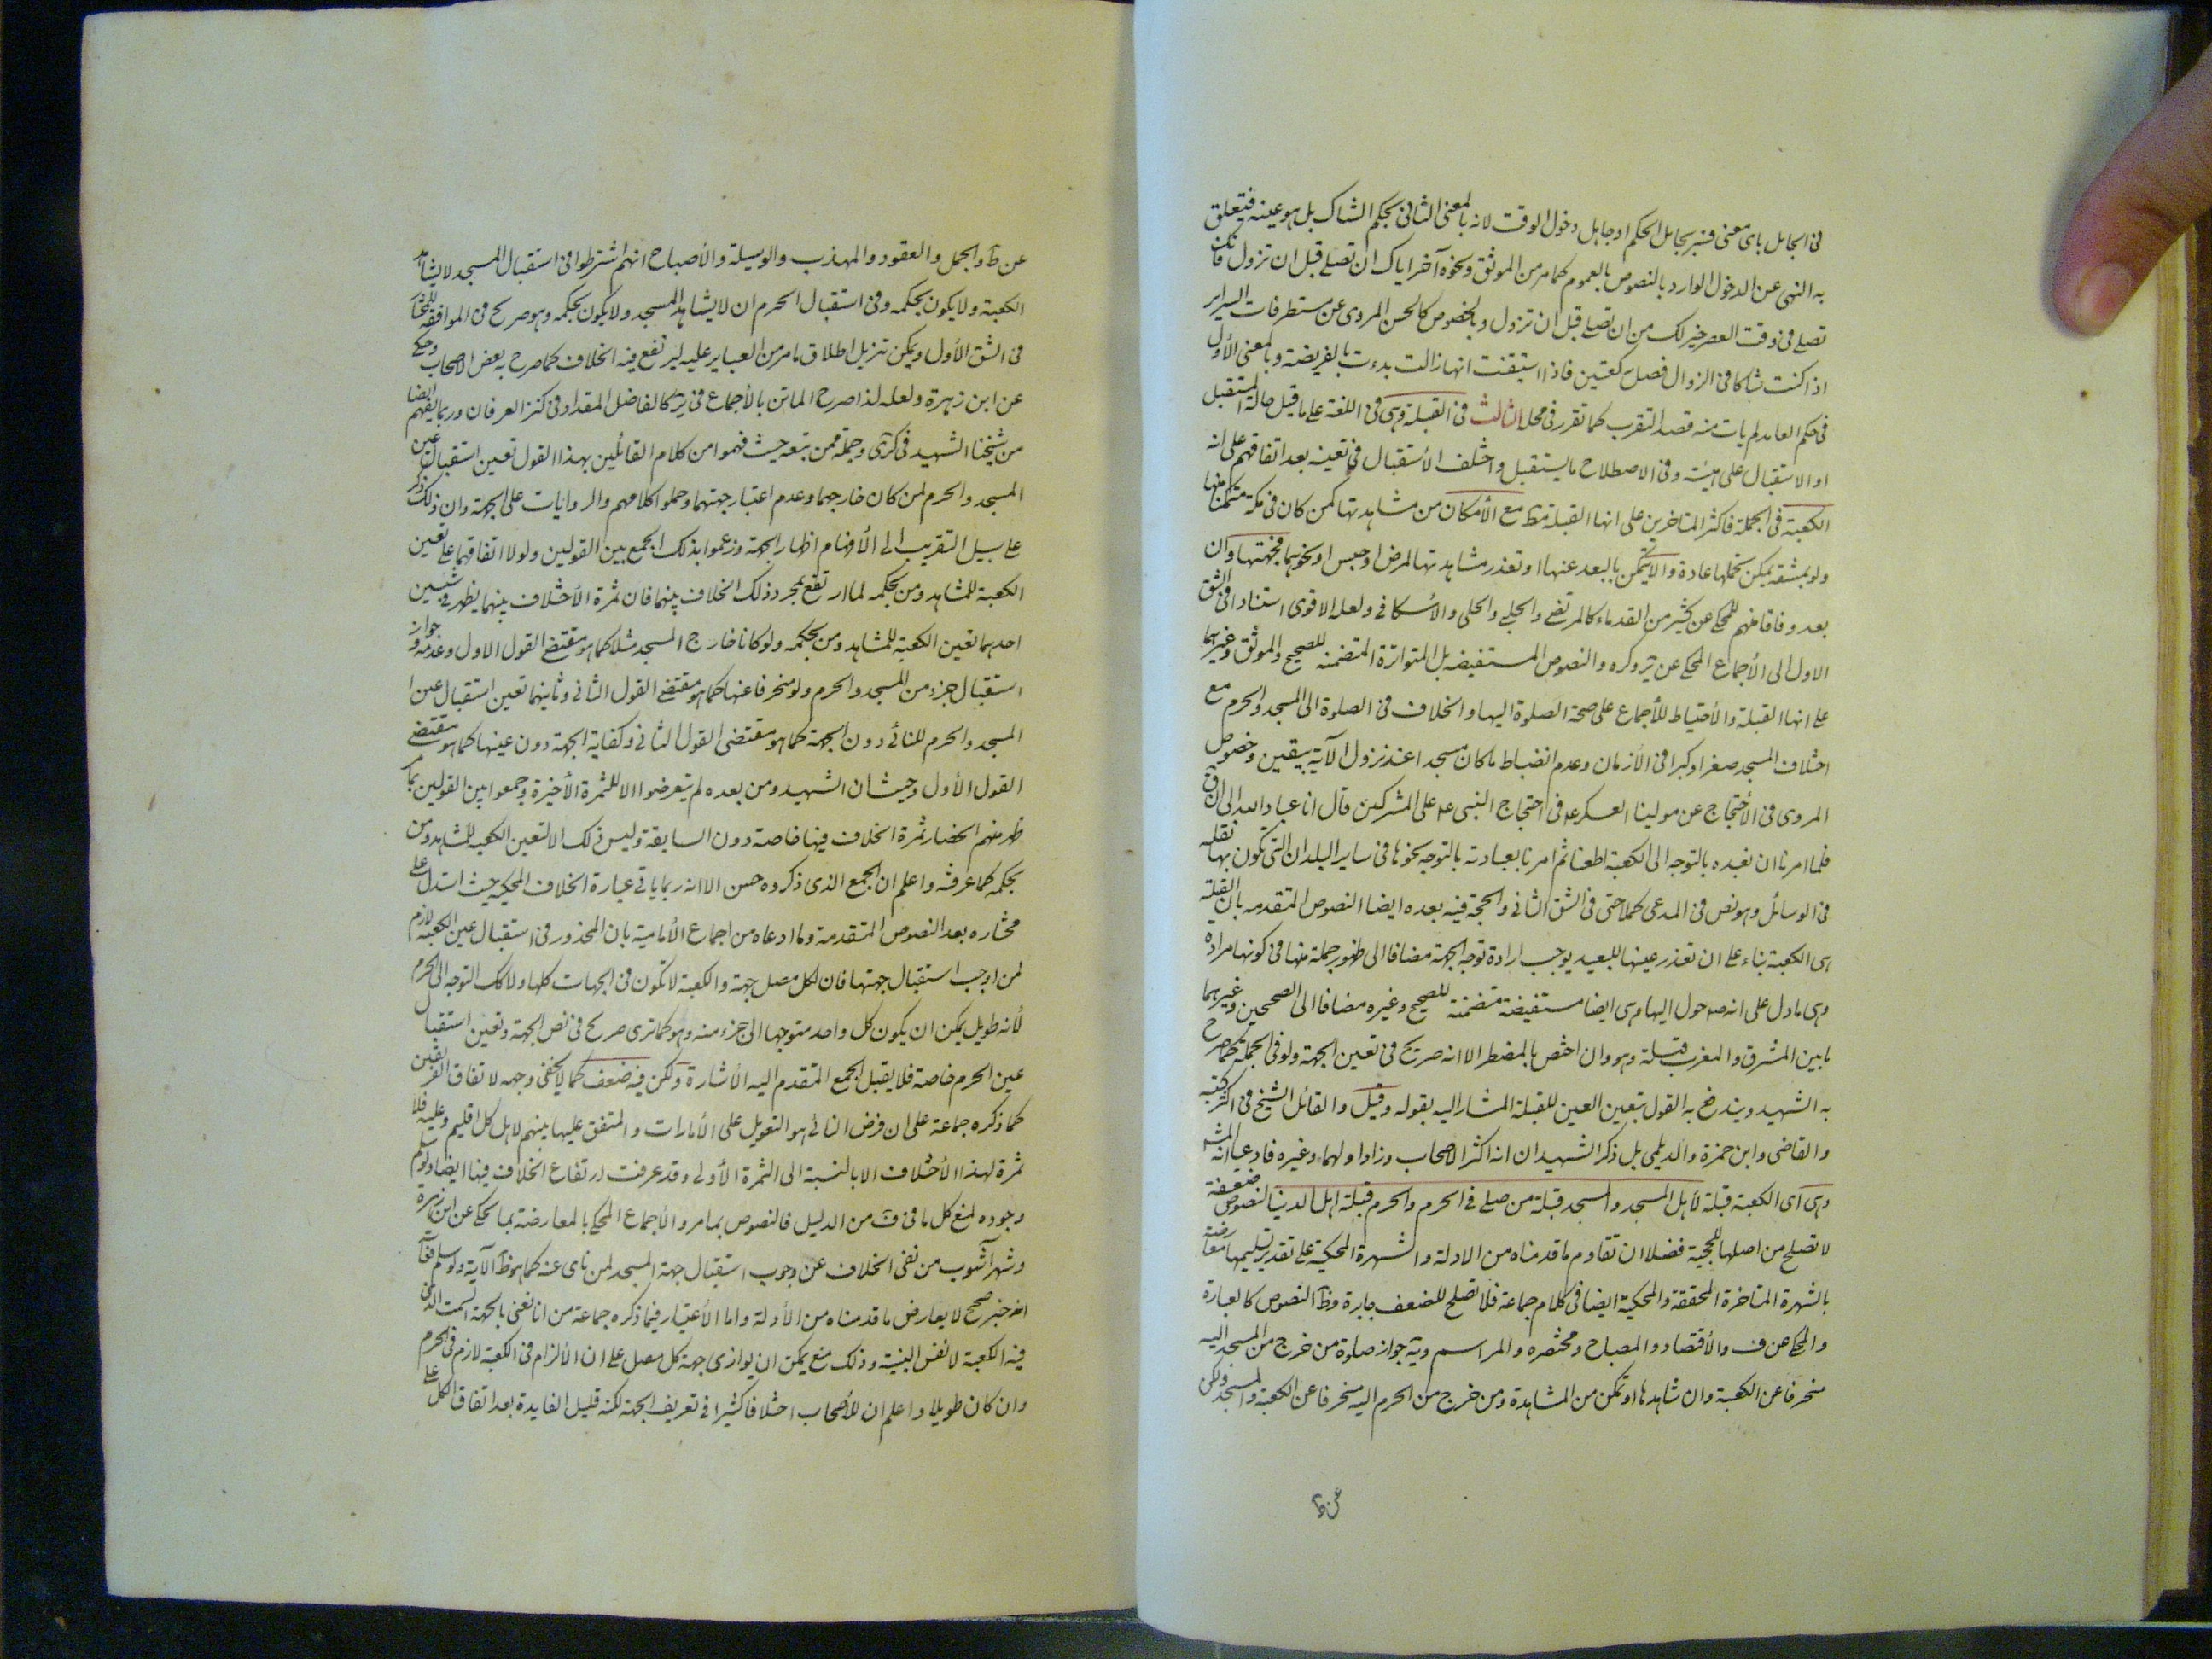 فى الجاهل باى معنى فسر بجاهل الحكم او جاهل دخول الوقت لانه بالمعنى الثانى بحكم الشاك بل هو عينه فيتعلق
به النهى عن الدخول الوارد بالنصوص بالعموم كما مر من الموثق ونحوه آخر اياك ان تصلى قبل ان تزول فانك
تصلى فى وقت العصر خير لك من ان تصلى قبل ان تزول وبالخصوص كالحسن المروى عن مستطرفات السراير
اذا كنت شاكا فى الزوال فصل ركعتين فاذا استيقنت انها زالت بدءت بالفريضة وبالمعنى الأول
فى حكم العامد لم يات منه قصد التقرب كما تقرر فى محله الثالث فى القبلة وهى فى اللغة على ما قيل حالة المستقبل
او الاستقبال على هيئة وفى الاصطلاح ما يستقبل واختلف الأستقبال فى تعينه بعد اتفاقهم على انه
الكعبة فى الجملة فاكثر المتاخرين على انها القبلة مع الأمكان من مشاهدتها كمن كان فى مكة متمكنا منها
ولو بمشقة يمكن تحملها عادة والا يتمكن بالبعد عنها او تعذر مشاهدتها لمرض او حبس او نحوهما فجهتها وان
بعد وفاقا منهم للمحكى عن كثير من القدماء كالمرتضى والحلبى والحلى والأسكافى ولعله الاقوى استنادا فى الشق
الاول الى الأجماع المحكى عن ير وكره والنصوص المستفيضه بل المتواترة المتضمنه للصحيح والموثق وغيرهما
على انها القبلة والأحتياط للأجماع على صحة الصلوة اليها والخلاف فى الصلوة الى المسجد والحرم مع
اختلاف المسجد صغرا وكبرا فى الأزمان وعدم انضباط ما كان مسجدا عند نزول الآية بيقين وخصوص
المروى فى الأحتجاج عن مولينا العسكرى فى احتجاج النبى ص على المشركين قال انا عباد الله الى ان ق
فلما امرنا ان نعبده بالتوجه الى الكعبة اطعنا ثم امرنا بعبادته بالتوجه نحوها فى ساير البلدان التى تكون بها نقله
فى الوسائل وهو نص فى المدعى كملا حتى فى الشق الثانى والحجة فيه بعده ايضا النصوص المتقدمه بان القبلة
هى الكعبة بناء على ان تعذر عينها للبعيد يوجب ارادة توجه الجهة مضافا الى ظهور جملة منها فى كونها مرادة
وهى ما دل على انه ص حول اليها وهى ايضا مستفيضة متضمنة للصحيح وغيره مضافا الى الصحيحين وغيرهما
ما بين المشرق والمغرب قبلة وهو وان اختص بالمضطر الا انه صريح فى تعين الجهة ولو فى الجملة كما صرح
به الشهيد ويندفع به القول بتعين العين للقبلة المشار اليه بقوله وقيل والقائل الشيخ فى اكثر كتبه
والقاضى وابن حمزة والديلمى بل ذكر الشهيدان انه اكثر الاصحاب وزاد اولهما وغيره فادعيا انه المشهور
وهى اى الكعبة قبلة لأهل المسجد والمسجد قبلة من صلى فى الحرم والحرم قبلة اهل الدنيا لنصوص ضعيفة
لا تصلح من اصلها للحجية فضلا ان تقاوم ما قدمناه من الادلة والشهرة المحكية على تقدير تسليمها معارضة
بالشهرة المتاخرة المحققة والمحكية ايضا فى كلام جماعة فلا تصلح للضعف جابرة وظ النصوص كالعبارة
والمحكى عن ف والأقتصاد والمصباح ومختصره والمراسم ويه جواز صلوة من خرج من المسجد اليه
منحرفا عن الكعبة وان شاهدها او تمكن من المشاهدة ومن خرج من الحرم اليه منحرفا عن الكعبة والمسجد ولكن
عن ط
عن ط والجمل والعقود والمهذب والوسيلة والأصباح انهم اشترطوا فى استقبال المسجد لا يشاهد
الكعبة ولا يكون بحكمه وفى استقبال الحرم ان لا يشاهد المسجد ولا يكون بحكمه وهو صريح فى الموافقه للمختار
فى الشق الأول ويمكن تنزيل اطلاق ما مر من العباير عليه ليرتفع فيه الخلاف كما صرح به بعض الاصحاب وحكى
عن ابن زهرة ولعله لذا صرح الماتن بالأجماع فى ير كالفاضل المقداد فى كنز العرفان وربما يفهم ايضا
من شيخنا الشهيد فى كرى وجملة ممن تبعه حيث فهموا من كلام القائلين بهذا القول تعين استقبال عين
المسجد والحرم لمن كان خارجهما وعدم اعتبار جهتهما وحملوا كلامهم والروايات على الجهة وان ذلك ذكر
على سبيل التقريب الى الأفهام اظهار الجهة وزعموا بذلك الجمع بين القولين ولولا اتفاقهما على تعين
الكعبة للمشاهد ومن بحكمه لما ارتفع بمجرد ذلك الخلاف بينهما فان ثمرة الأختلاف بينهما يظهر فى شيئين
احدهما تعين الكعبة للمشاهد ومن بحكمه ولو كانا خارج المسجد مثلا كما هو مقتضى القول الاول وعدمه وجواز
استقبال جزء من المسجد والحرم ولو منحرفا عنها كما هو مقتضى القول الثانى وثانيهما تعين استقبال عين ا
المسجد والحرم للنائى دون الجهة كما هو مقتضى القول الثانى وكفاية الجهة دون عينها كما هو مقتضى
القول الأول وحيث ان الشهيد ومن بعده لم يتعرضوا الا للثمرة الأخيرة وجمعوا بين القولين بما مر
ظهر منهم انحصار ثمرة الخلاف فيها خاصة دون السابقة وليس ذلك الا لتعين الكعبه للمشاهد ومن
بحكمه كما عرفته واعلم ان الجمع الذى ذكروه حسن الا انه ربما ياباه عبارة الخلاف المحكية حيث استدل على
مختاره بعد النصوص المتقدمة وما ادعاه من اجماع الأمامية بان المحذور فى استقبال عين الكعبة لازم
لمن اوجب استقبال جهتها فان لكل مصل جهة والكعبة لا تكون فى الجهات كلها ولا كك التوجه الى الحرم
لأنه طويل يمكن ان يكون كل واحد متوجها الى جزء منه وهو كما ترى صريح فى نص الجهة وتعين استقبال
عين الحرم خاصة فلا يقبل الجمع المتقدم اليه الأشارة ولكن فيه ضعف كما لا يخفى وجهه لاتفاق الفريقين
كما ذكره جماعة على ان فرض النائى هو التعويل على الأمارات والمتفق عليها بينهم لاهل كل اقليم وعليه فلا
ثمرة لهذا الأختلاف الا بالنسبة الى الثمرة الأولى وقد عرفت ارتفاع الخلاف فيها ايضا ولو سلم
وجوده لمنع كل ما فى ف من الدليل فالنصوص بما مر والأجماع المحكى بالمعارضة بما حكى عن ابن زهرة
وشهرآشوب من نفى الخلاف عن وجوب استقبال جهة المسجد لمن ناى عنه كما هو ظ الآية ولو سلم فغايته
انه خبر صحيح لا يعارض ما قدمناه من الأدلة واما الأعتبار فيما ذكره جماعة من انا نعنى بالجهة السمت الذى
فيه الكعبة لا نفس البنية وذلك متسع يمكن ان يوازى جهة كل مصل على ان الألزام فى الكعبة لازم فى الحرم
وان كان طويلا واعلم ان للأصحاب اختلافا كثيرا فى تعريف الجهة لكنه قليل الفايدة بعد اتفاق الكل على